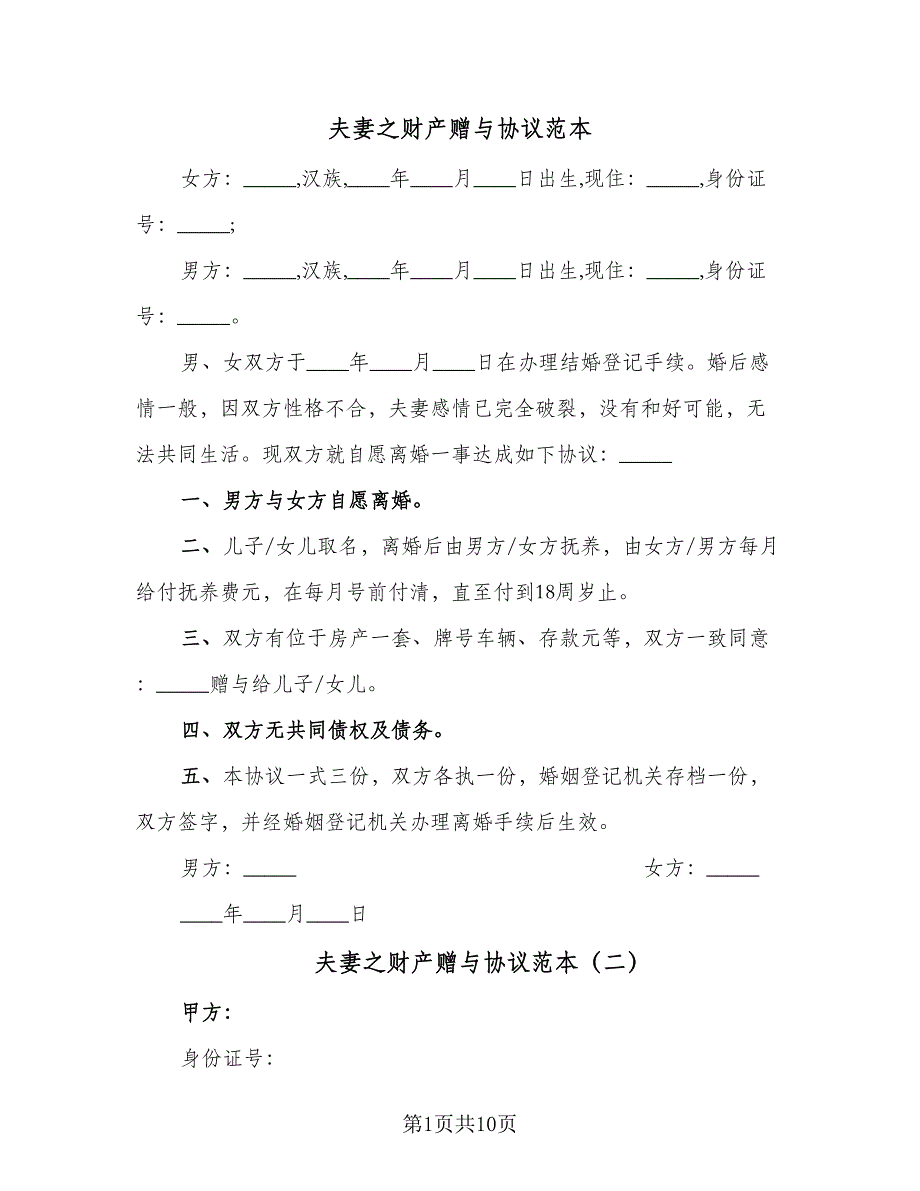 夫妻之财产赠与协议范本
女方：_____,汉族,____年____月____日出生,现住：_____,身份证
号：_____;
男方：_____,汉族,____年____月____日出生,现住：_____,身份证
号：_____。
男、女双方于____年____月____日在办理结婚登记手续。婚后感
情一般，因双方性格不合，夫妻感情已完全破裂，没有和好可能，无
法共同生活。现双方就自愿离婚一事达成如下协议：_____
一、男方与女方自愿离婚。
二、儿子/女儿取名，离婚后由男方/女方抚养，由女方/男方每月
给付抚养费元，在每月号前付清，直至付到18周岁止。
三、双方有位于房产一套、牌号车辆、存款元等，双方一致同意
：_____赠与给儿子/女儿。
四、双方无共同债权及债务。
五、本协议一式三份，双方各执一份，婚姻登记机关存档一份，
双方签字，并经婚姻登记机关办理离婚手续后生效。
男方：_____ 女方：_____
____年____月____日
夫妻之财产赠与协议范本（二）
甲方：
身份证号：
第1页共10页